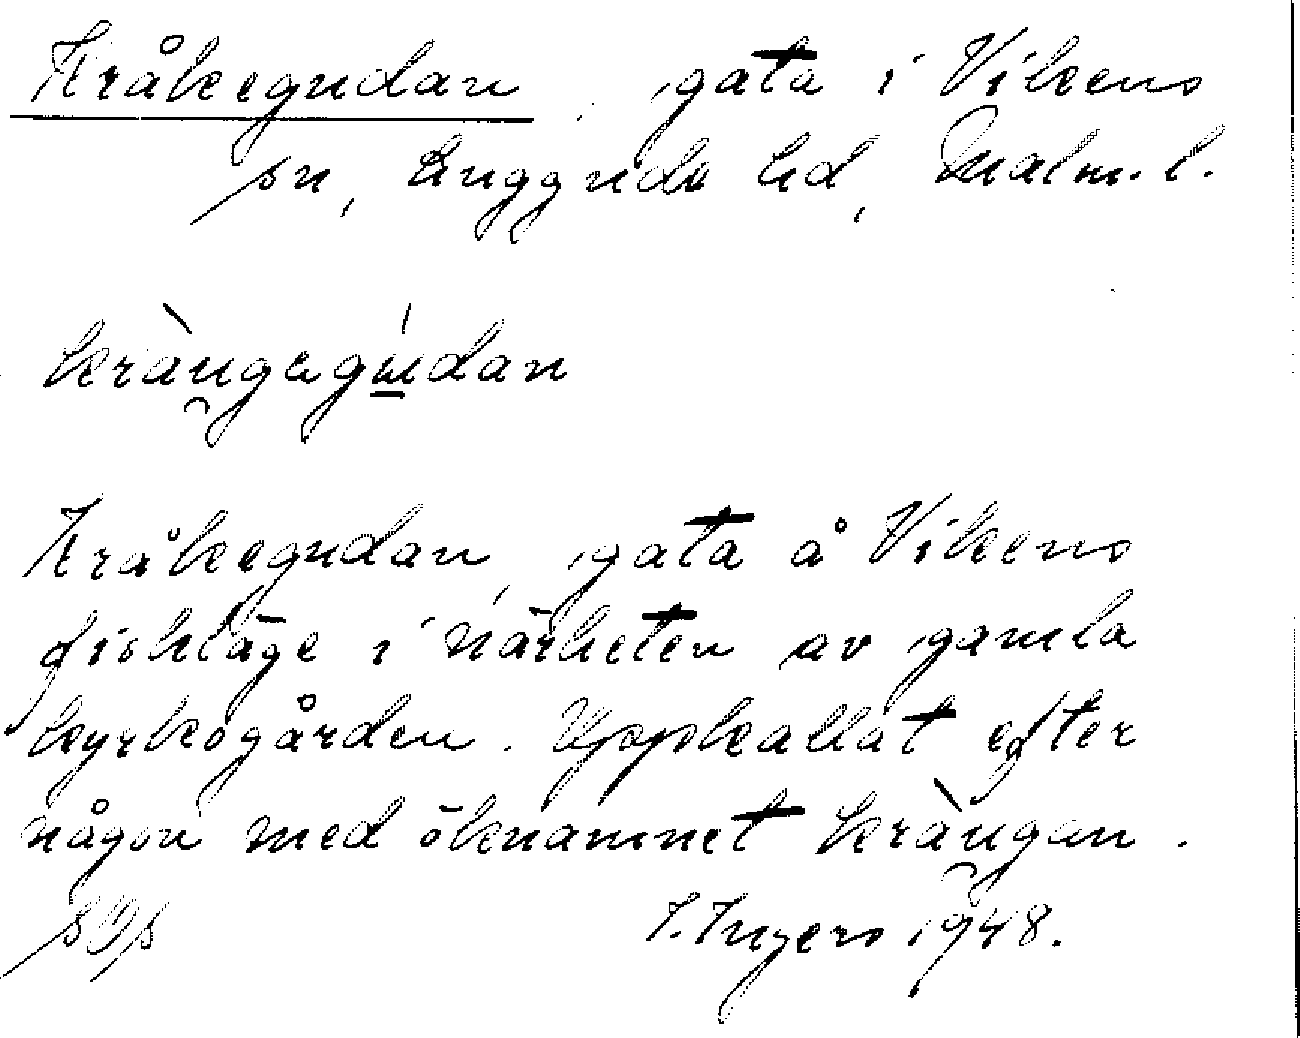 Kråkegudan gata i Vikens
sn, Luggude hd, Malm. l.
kràu̯gagúdan
Kråkegudan, gata å Vikens
fiskläge i närheten av gamla
kyrkogården. Uppkallat efter
någon med öknamnet kràu̯gan.
I. Ingers 1948.